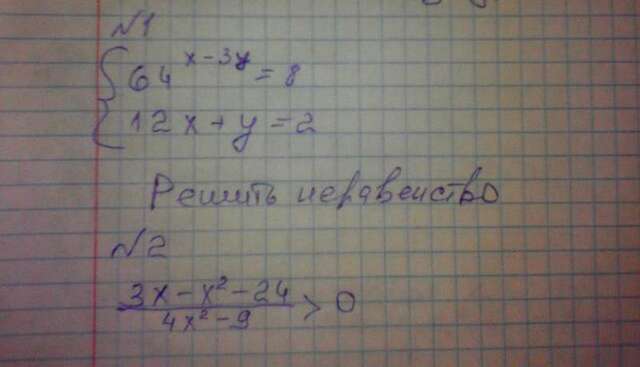 №1
64^{x-3y} = 8
12x + y = 2
Решить неравенство
№2
\frac{3x - x² - 24}{4x² - 9} > 0